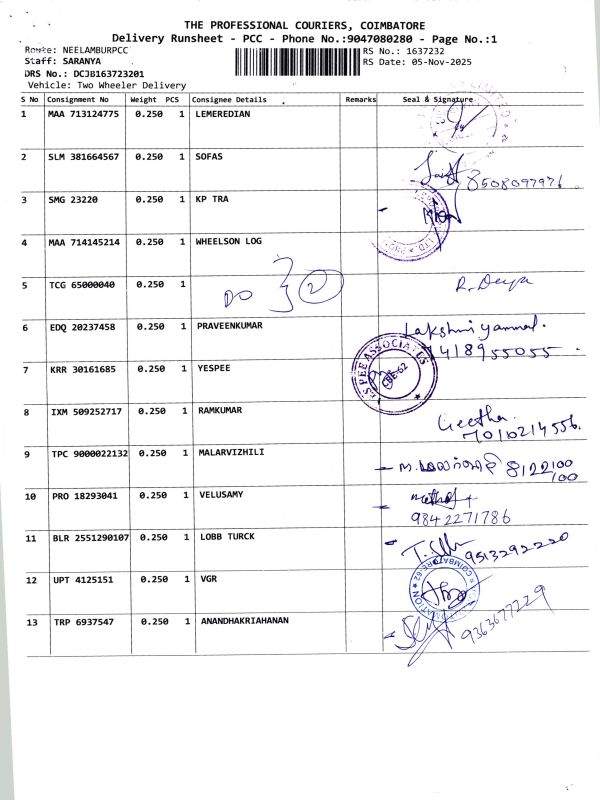 THE PROFESSIONAL COURIERS, COIMBATORE
Delivery Runsheet - PCC - Phone No.:9047080280 - Page No.:1
Route: NEELAMBURPCC
RS No.: 1637232
Staff: SARANYA
RS Date: 05-Nov-2025
DRS No.: DCJB163723201
Vehicle: Two Wheeler Delivery
S No Consignment No Weight PCS Consignee Details Remarks Seal & Signature
1 MAA 713124775 0.250 1 LEMEREDIAN
2 SLM 381664567 0.250 1 SOFAS
8508097976
3 SMG 23220 0.250 1 KP TRA
4 MAA 714145214 0.250 1 WHEELSON LOG
5 TCG 65000040 0.250 1
DO } 2
6 EDQ 20237458 0.250 1 PRAVEENKUMAR Lakshmi yammal.
7418955055
7 KRR 30161685 0.250 1 YESPEE
YES PEE ASSOCIATES
CBE-62
8 IXM 509252717 0.250 1 RAMKUMAR Geetha.
7010214556.
9 TPC 9000022132 0.250 1 MALARVIZHILI 8122100
100
10 PRO 18293041 0.250 1 VELUSAMY
9842271786
11 BLR 2551290107 0.250 1 LOBB TURCK
9513292220
12 UPT 4125151 0.250 1 VGR
COIMBATORE-62
13 TRP 6937547 0.250 1 ANANDHAKRIAHANAN 9363677229